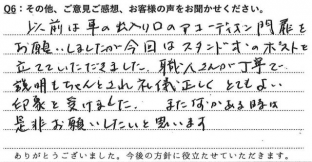 Q6：その他、ご意見ご感想、お客様の声をお聞かせください。
以前は車の出入り口のアコーディオン門扉を
お願いしましたが今回はスタンドポストを
立てていただきました。職人さんが丁寧で
説明もちゃんとされ礼儀正しくとてもよい
印象を受けました。また何かある時は
是非お願いしたいと思います
ありがとうございました。今後の方針に役立たせていただきます。